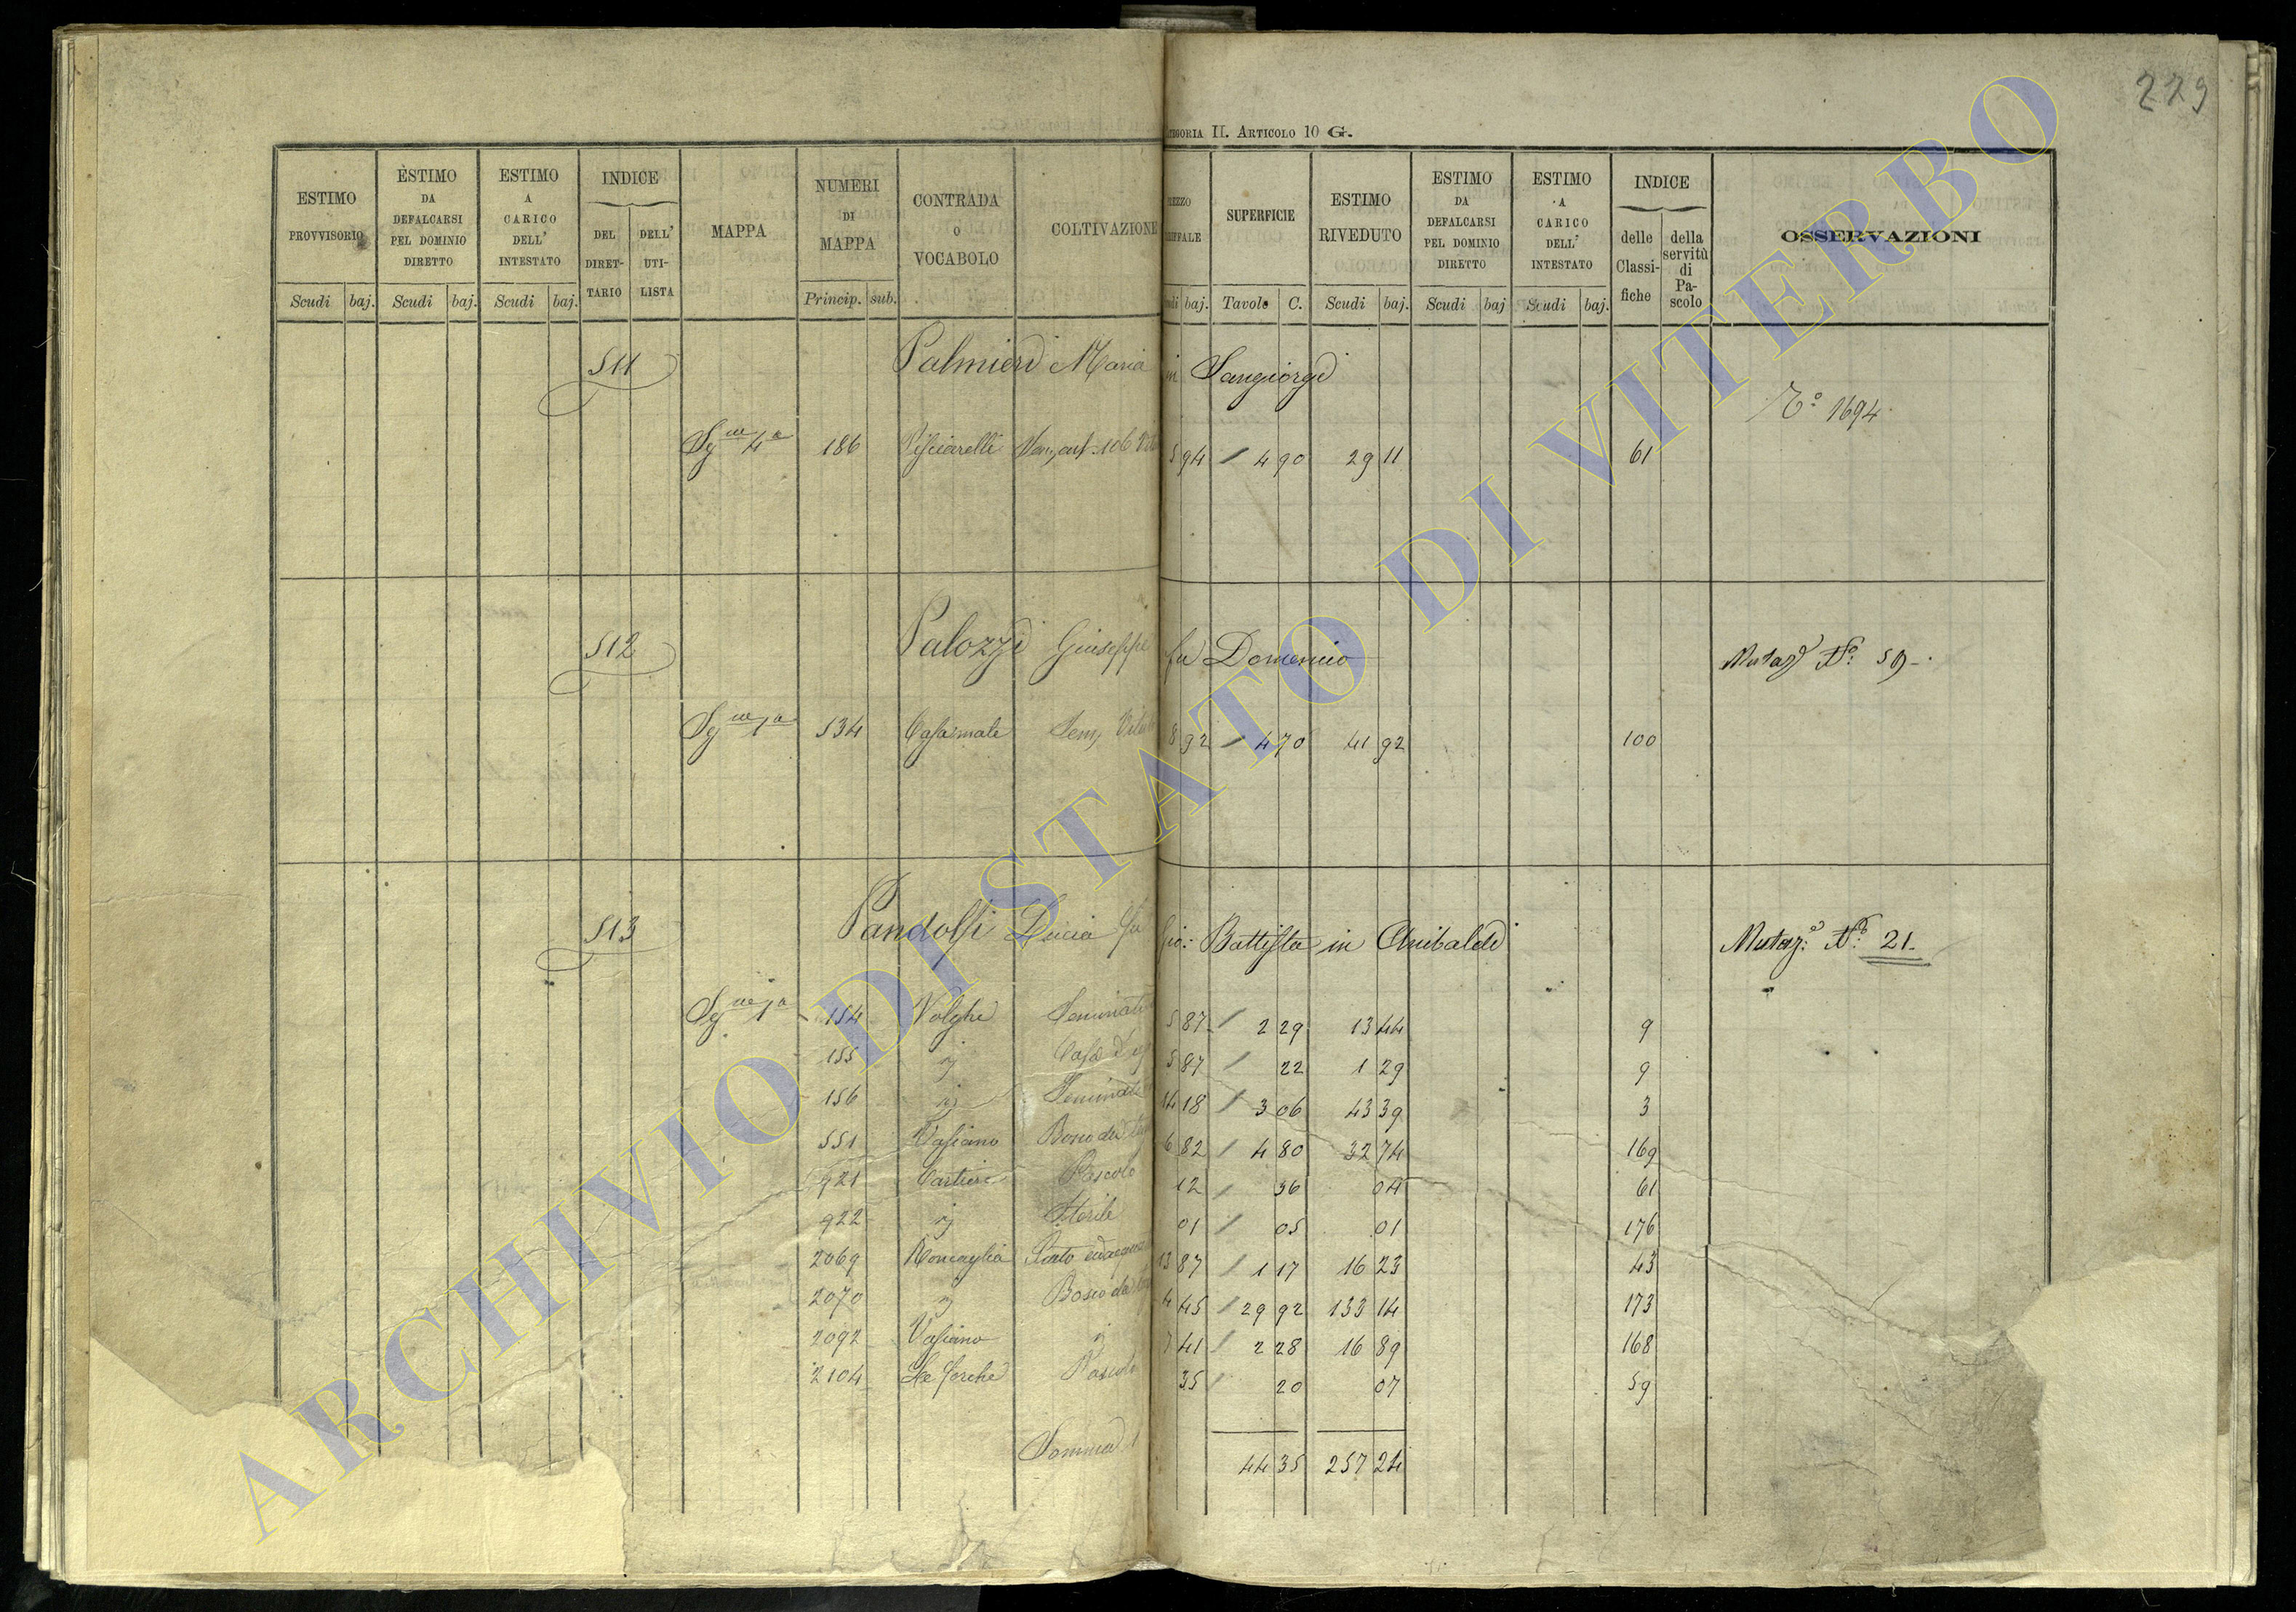 229
CATEGORIA II. ARTICOLO 10 G.
ESTIMO PROVVISORIO
ESTIMO DA DEFALCARSI PEL DOMINIO DIRETTO
ESTIMO A CARICO DELL' INTESTATO
INDICE
DEL DIRETTARIO
DELL' UTILISTA
MAPPA
NUMERI DI MAPPA
CONTRADA o VOCABOLO
COLTIVAZIONE
SUPERFICIE
ESTIMO RIVEDUTO
ESTIMO DA DEFALCARSI PEL DOMINIO DIRETTO
ESTIMO A CARICO DELL' INTESTATO
INDICE
delle Classifiche
della servitù di Pascolo
OSSERVAZIONI
Scudi baj. Scudi baj. Scudi baj. Princip. sub. baj. Tavole C. Scudi baj. Scudi baj Scudi baj.
511 Palmieri Maria in Sangiorgi
N.° 1694
Sg.ne 4a 186 Pisciarelli 5 94 / 4 90 29 11 61
512 Palozzi Giuseppe fu Domenico Mutaz. N.° 59
Sg.ne 1a 534 Casamale Sem. 8 92 / 4 70 41 92 100
513 Pandolfi Lucia fu Gio: Battista in Anibaldi Mutaz.e N.° 21.
Sg.ne 1a 154 Volghe Seminat 5 87 / 2 29 13 44 9
155 ij Casa 5 87 / 22 1 29 9
156 ij Seminat 14 18 / 3 06 43 39 3
551 Vasiano Bosco da 6 82 / 4 80 32 74 169
921 Cartiere Pascolo 12 / 36 04 61
922 ij Sterile 01 / 05 01 176
2069 Roncaglia Prato 13 87 / 1 17 16 23 43
2070 ij Bosco da 4 45 / 29 92 133 14 173
2092 Vasiano ij 7 41 / 2 28 16 89 168
2104 Le forche Pascolo 35 / 20 07 59
Somma 44 35 257 24
ARCHIVIO DI STATO DI VITERBO